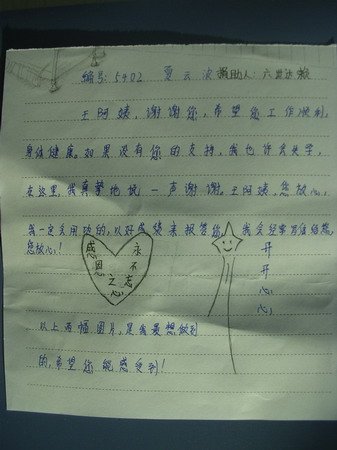 编号: 5902 夏云波 资助人: 六
王阿姨, 谢谢您, 希望您工作顺利,
身体健康, 如果没有您的支持, 我也许会失学,
在这里, 我真挚地说一声谢谢, 王阿姨, 您放心,
我一定会用功的, 以好成绩来报答您, 我会经常写信给您,
您放心!
感恩之心
永不忘
开开心心
以上两幅图片, 是我最想做到
的, 希望您能感受到!